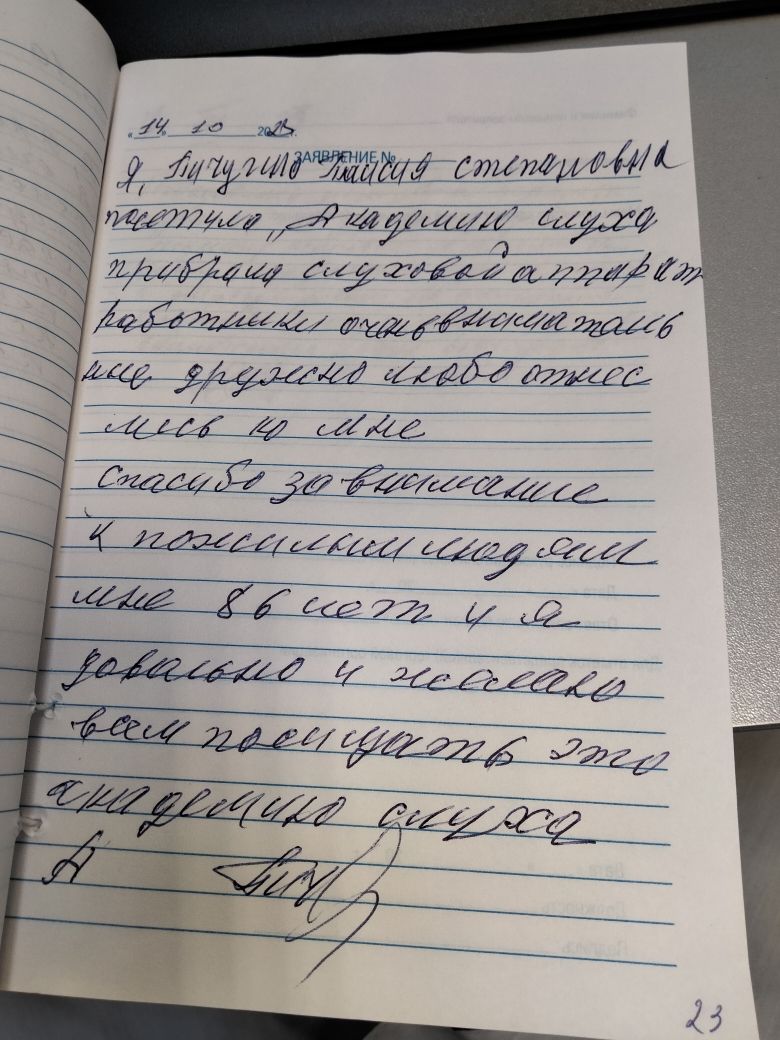 «14» 10 2023г.
ЗАЯВЛЕНИЕ №
Я, Пичугина Таисия степановна
посетила „Академию слуха
прибрала слуховой аппарат
работники очень вниматель
ные дружно любо отнес
лись ко мне
спасибо за внимание
к пожилым людям
мне 86 лет и я
довально и желаю
всем посищать это
академию слуха
23